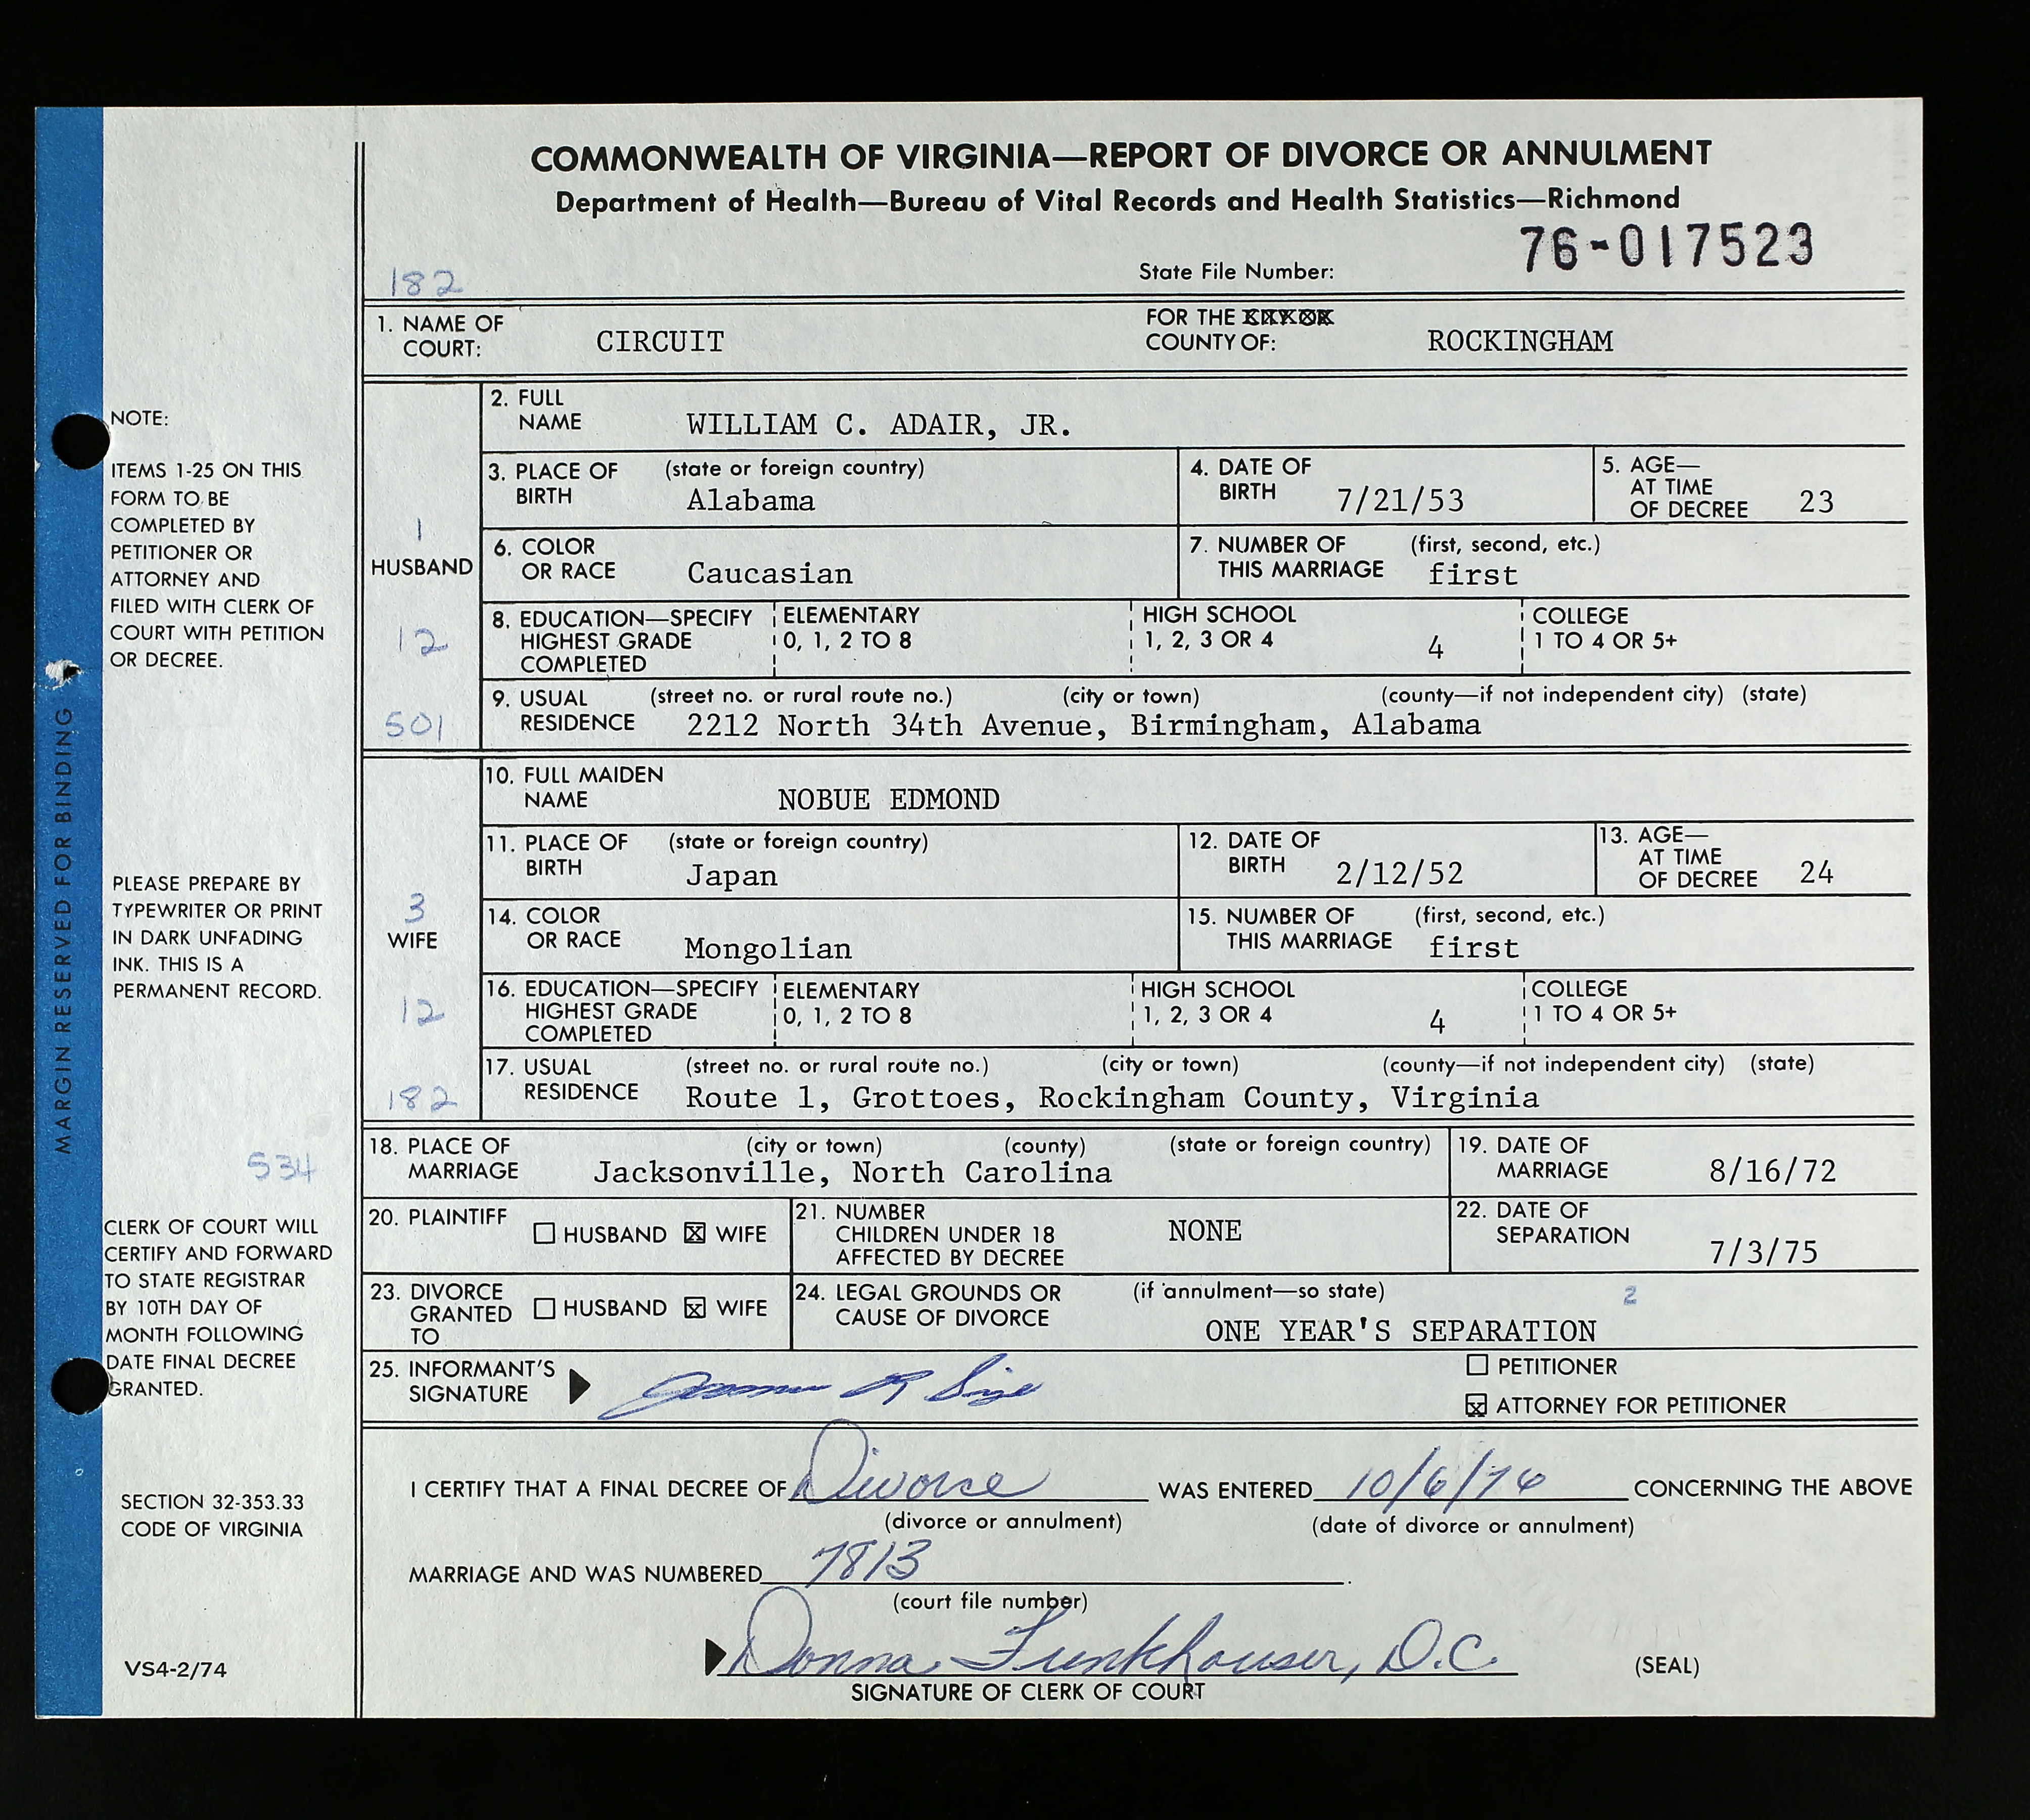 COMMONWEALTH OF VIRGINIA—REPORT OF DIVORCE OR ANNULMENT
Department of Health—Bureau of Vital Records and Health Statistics—Richmond
State File Number: 76-017523
182
1. NAME OF COURT: CIRCUIT
FOR THE
COUNTY OF: ROCKINGHAM
NOTE:
ITEMS 1-25 ON THIS
FORM TO BE
COMPLETED BY
PETITIONER OR
ATTORNEY AND
FILED WITH CLERK OF
COURT WITH PETITION
OR DECREE.
PLEASE PREPARE BY
TYPEWRITER OR PRINT
IN DARK UNFADING
INK. THIS IS A
PERMANENT RECORD.
534
CLERK OF COURT WILL
CERTIFY AND FORWARD
TO STATE REGISTRAR
BY 10TH DAY OF
MONTH FOLLOWING
DATE FINAL DECREE
GRANTED.
SECTION 32-353.33
CODE OF VIRGINIA
VS4-2/74
MARGIN RESERVED FOR BINDING
1
HUSBAND
12
501
2. FULL NAME WILLIAM C. ADAIR, JR.
3. PLACE OF BIRTH (state or foreign country) Alabama
4. DATE OF BIRTH 7/21/53
5. AGE— AT TIME OF DECREE 23
6. COLOR OR RACE Caucasian
7. NUMBER OF THIS MARRIAGE (first, second, etc.) first
8. EDUCATION—SPECIFY HIGHEST GRADE COMPLETED
ELEMENTARY 0, 1, 2 TO 8
HIGH SCHOOL 1, 2, 3 OR 4 4
COLLEGE 1 TO 4 OR 5+
9. USUAL RESIDENCE (street no. or rural route no.) (city or town) (county—if not independent city) (state)
2212 North 34th Avenue, Birmingham, Alabama
3
WIFE
12
182
10. FULL MAIDEN NAME NOBUE EDMOND
11. PLACE OF BIRTH (state or foreign country) Japan
12. DATE OF BIRTH 2/12/52
13. AGE— AT TIME OF DECREE 24
14. COLOR OR RACE Mongolian
15. NUMBER OF THIS MARRIAGE (first, second, etc.) first
16. EDUCATION—SPECIFY HIGHEST GRADE COMPLETED
ELEMENTARY 0, 1, 2 TO 8
HIGH SCHOOL 1, 2, 3 OR 4 4
COLLEGE 1 TO 4 OR 5+
17. USUAL RESIDENCE (street no. or rural route no.) (city or town) (county—if not independent city) (state)
Route 1, Grottoes, Rockingham County, Virginia
18. PLACE OF MARRIAGE (city or town) (county) (state or foreign country)
Jacksonville, North Carolina
19. DATE OF MARRIAGE 8/16/72
20. PLAINTIFF HUSBAND ☒ WIFE
21. NUMBER CHILDREN UNDER 18 AFFECTED BY DECREE NONE
22. DATE OF SEPARATION 7/3/75
23. DIVORCE GRANTED TO HUSBAND ☒ WIFE
24. LEGAL GROUNDS OR CAUSE OF DIVORCE (if annulment—so state) 2
ONE YEAR'S SEPARATION
25. INFORMANT'S SIGNATURE
PETITIONER
☒ ATTORNEY FOR PETITIONER
I CERTIFY THAT A FINAL DECREE OF Divorce WAS ENTERED 10/6/76 CONCERNING THE ABOVE
(divorce or annulment) (date of divorce or annulment)
MARRIAGE AND WAS NUMBERED 7813.
(court file number)
Donna Funkhouser, D.C. (SEAL)
SIGNATURE OF CLERK OF COURT